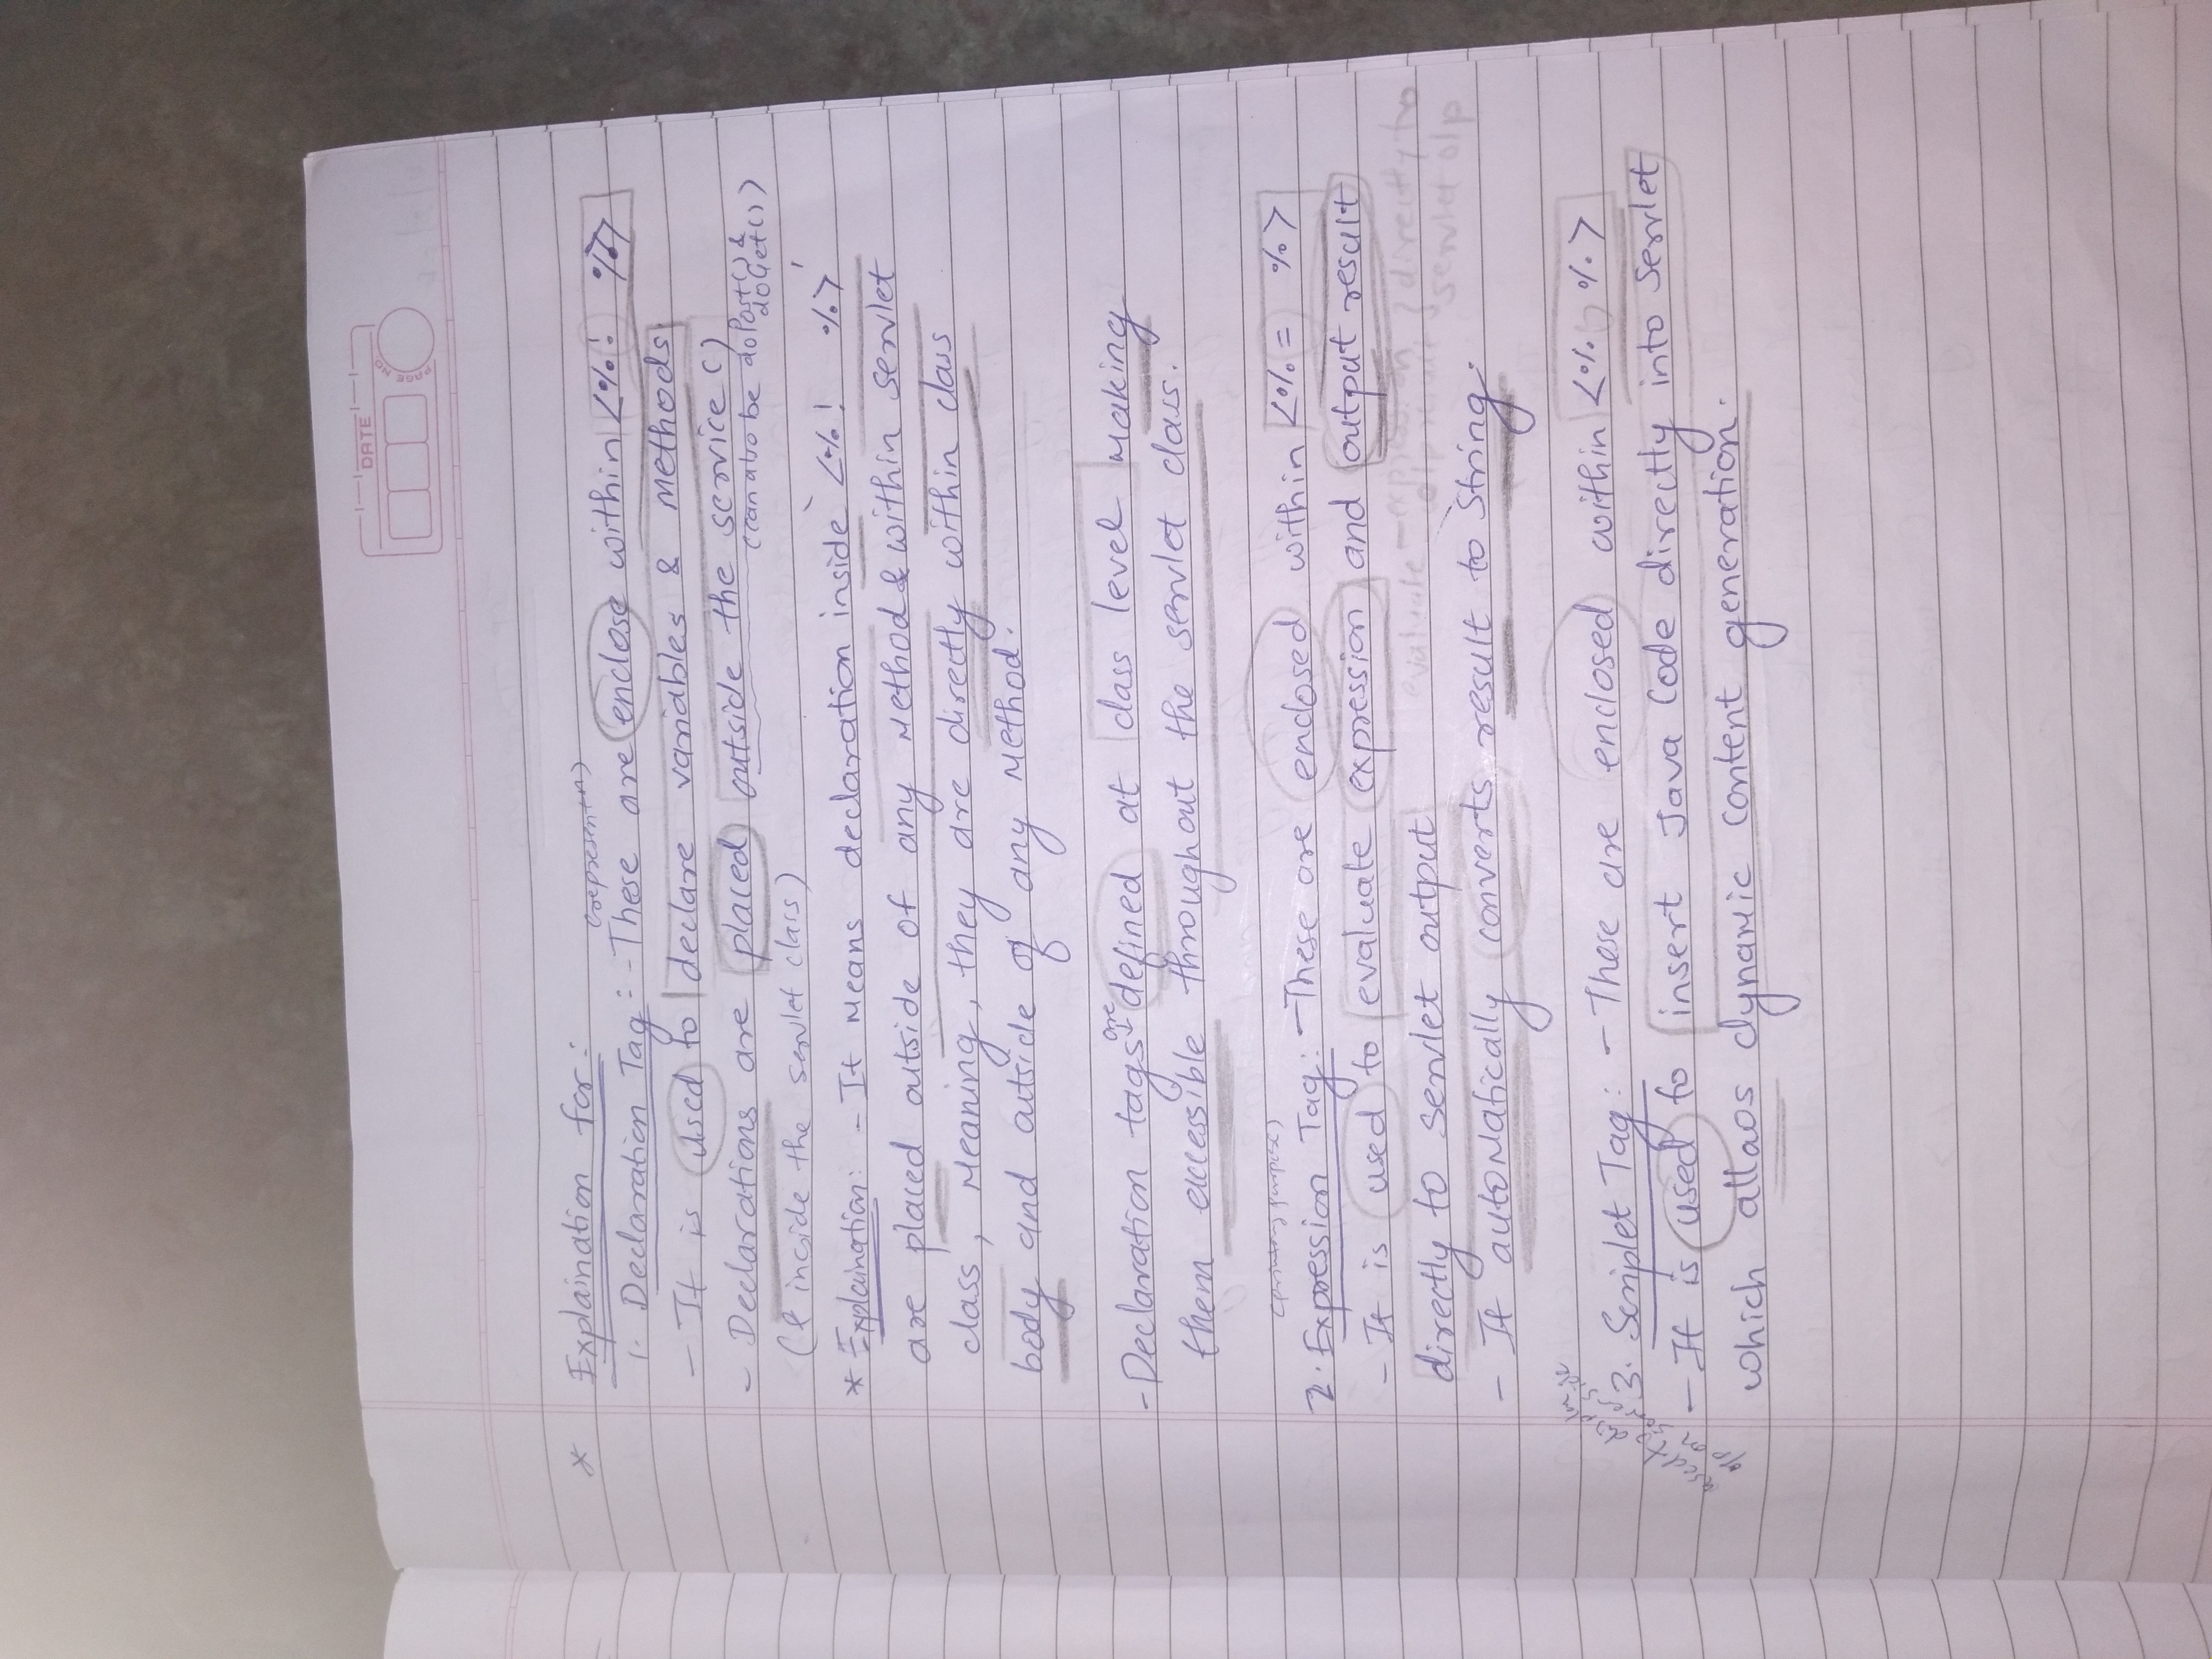 DATE
PAGE NO.
* Explaination for:
(representn)
1. Declaration Tag: - These are enclose within <%! %>
- It is used to declare variables & methods
- Declarations are placed outside the service ()
(can also be doPost() &
doGet())
(& inside the servlet class)
* Explaination: - It means declaration inside <%! %>
are placed outside of any method & within servlet
class, meaning, they are directly within class
body and outside of any method.
- Declaration tags are defined at class level making
them accessible throughout the servlet class.
(printing purpose)
2. Expression Tag: - These are enclosed within <%= %>
- It is used to evaluate expression and output result
directly to servlet output
evaluate - expression } directly to
o/p result servlet o/p
- It automatically converts result to String.
used to display
o/p on server side
3. Scriplet Tag: - These are enclosed within <% %>
- It is used to insert Java Code directly into Servlet
which allaos dynamic content generation.